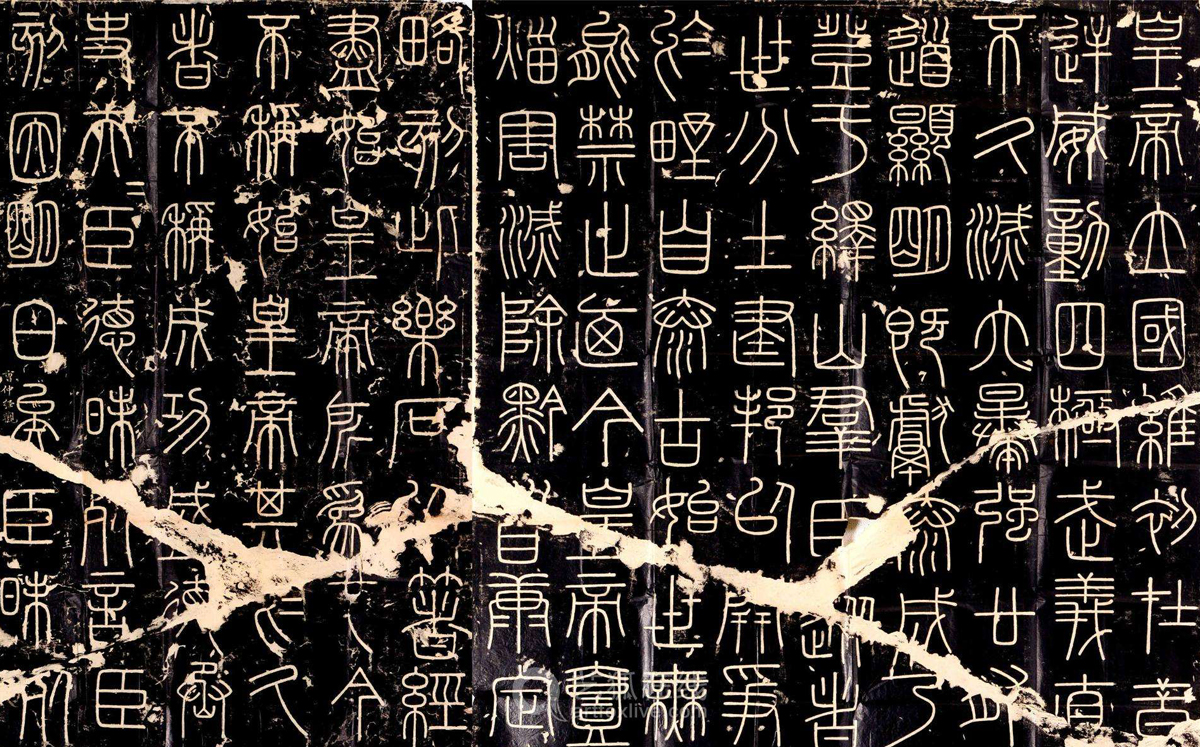 皇帝立國維初在昔
逆威動四極武義直
不久滅六暴強廿有
道顯明既獻泰成乃
登于繹山群臣從者
世分土建邦以開爭
於野自泰古始世無
能禁止迺今皇帝壹
災害滅除黔首康定
略刻此樂石以著經
盡始皇帝所為也今
不稱始皇帝其於久
者不稱成功盛德丞
史夫=臣德昧死言臣
刻因明白矣臣昧死